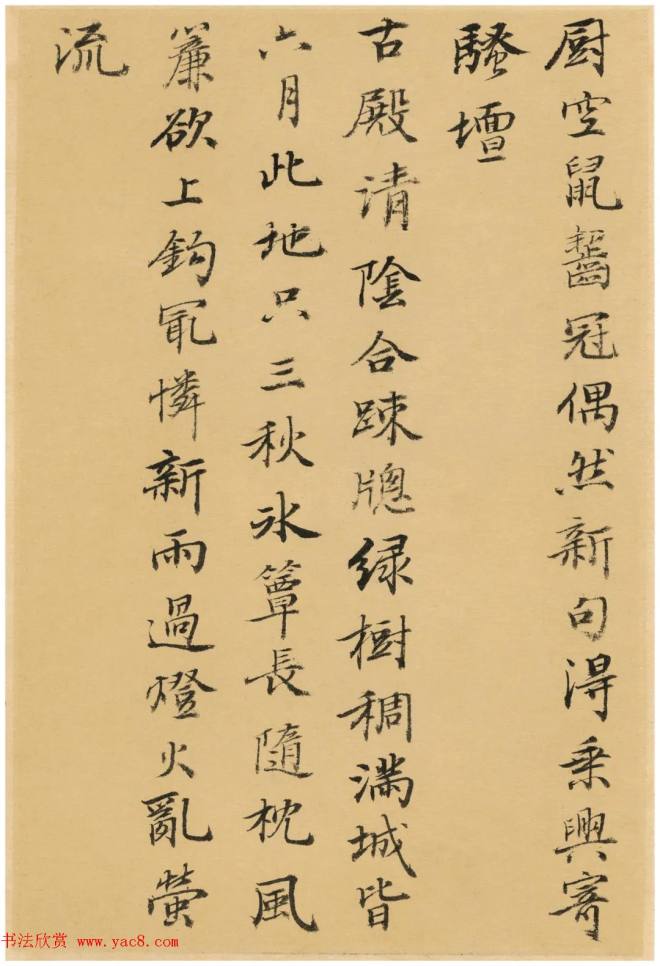 厨空鼠齧冠偶然新句淂乗興寄
騷壇
古殿清陰合踈牎緑樹稠滿城皆
六月此地只三秋氷簟長隨枕風
簾欲上鈎冣憐新雨過燈火亂螢
流
书法欣赏 www.yac8.com